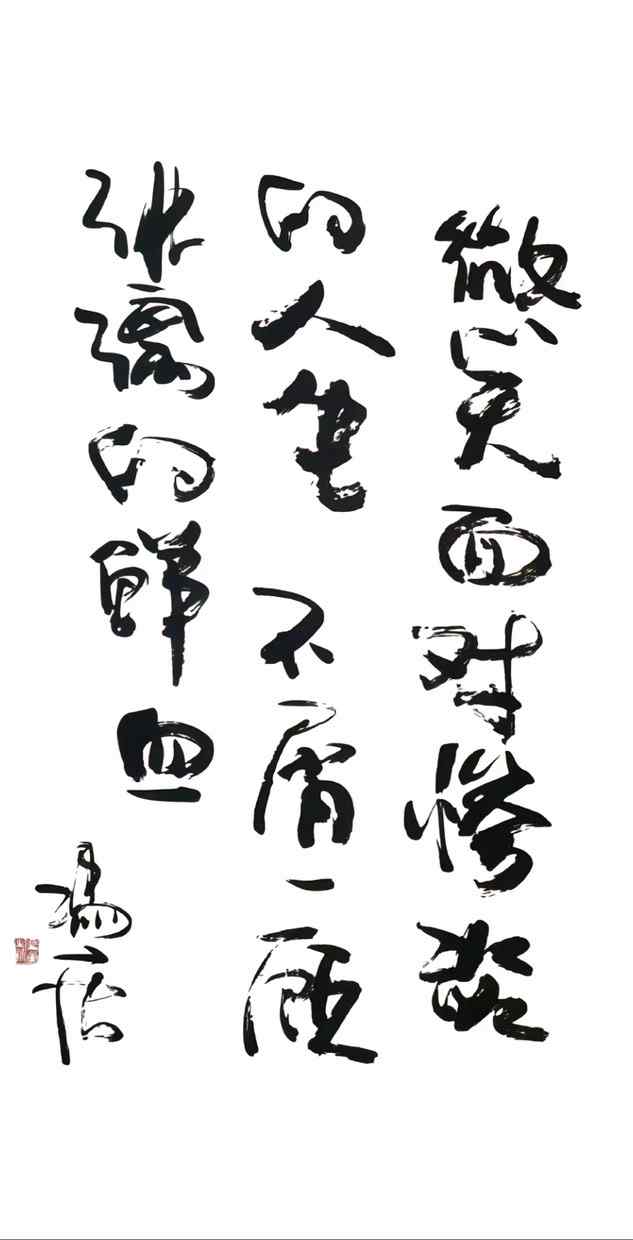 微笑面对惨淡
的人生 不屑一顾
淋漓的鲜血